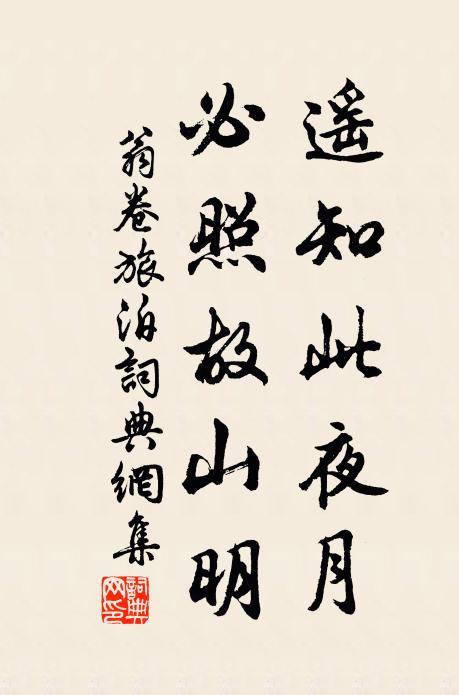 遥知此夜月
必照故山明
翁卷旅泊詞典網集
詞典
网印